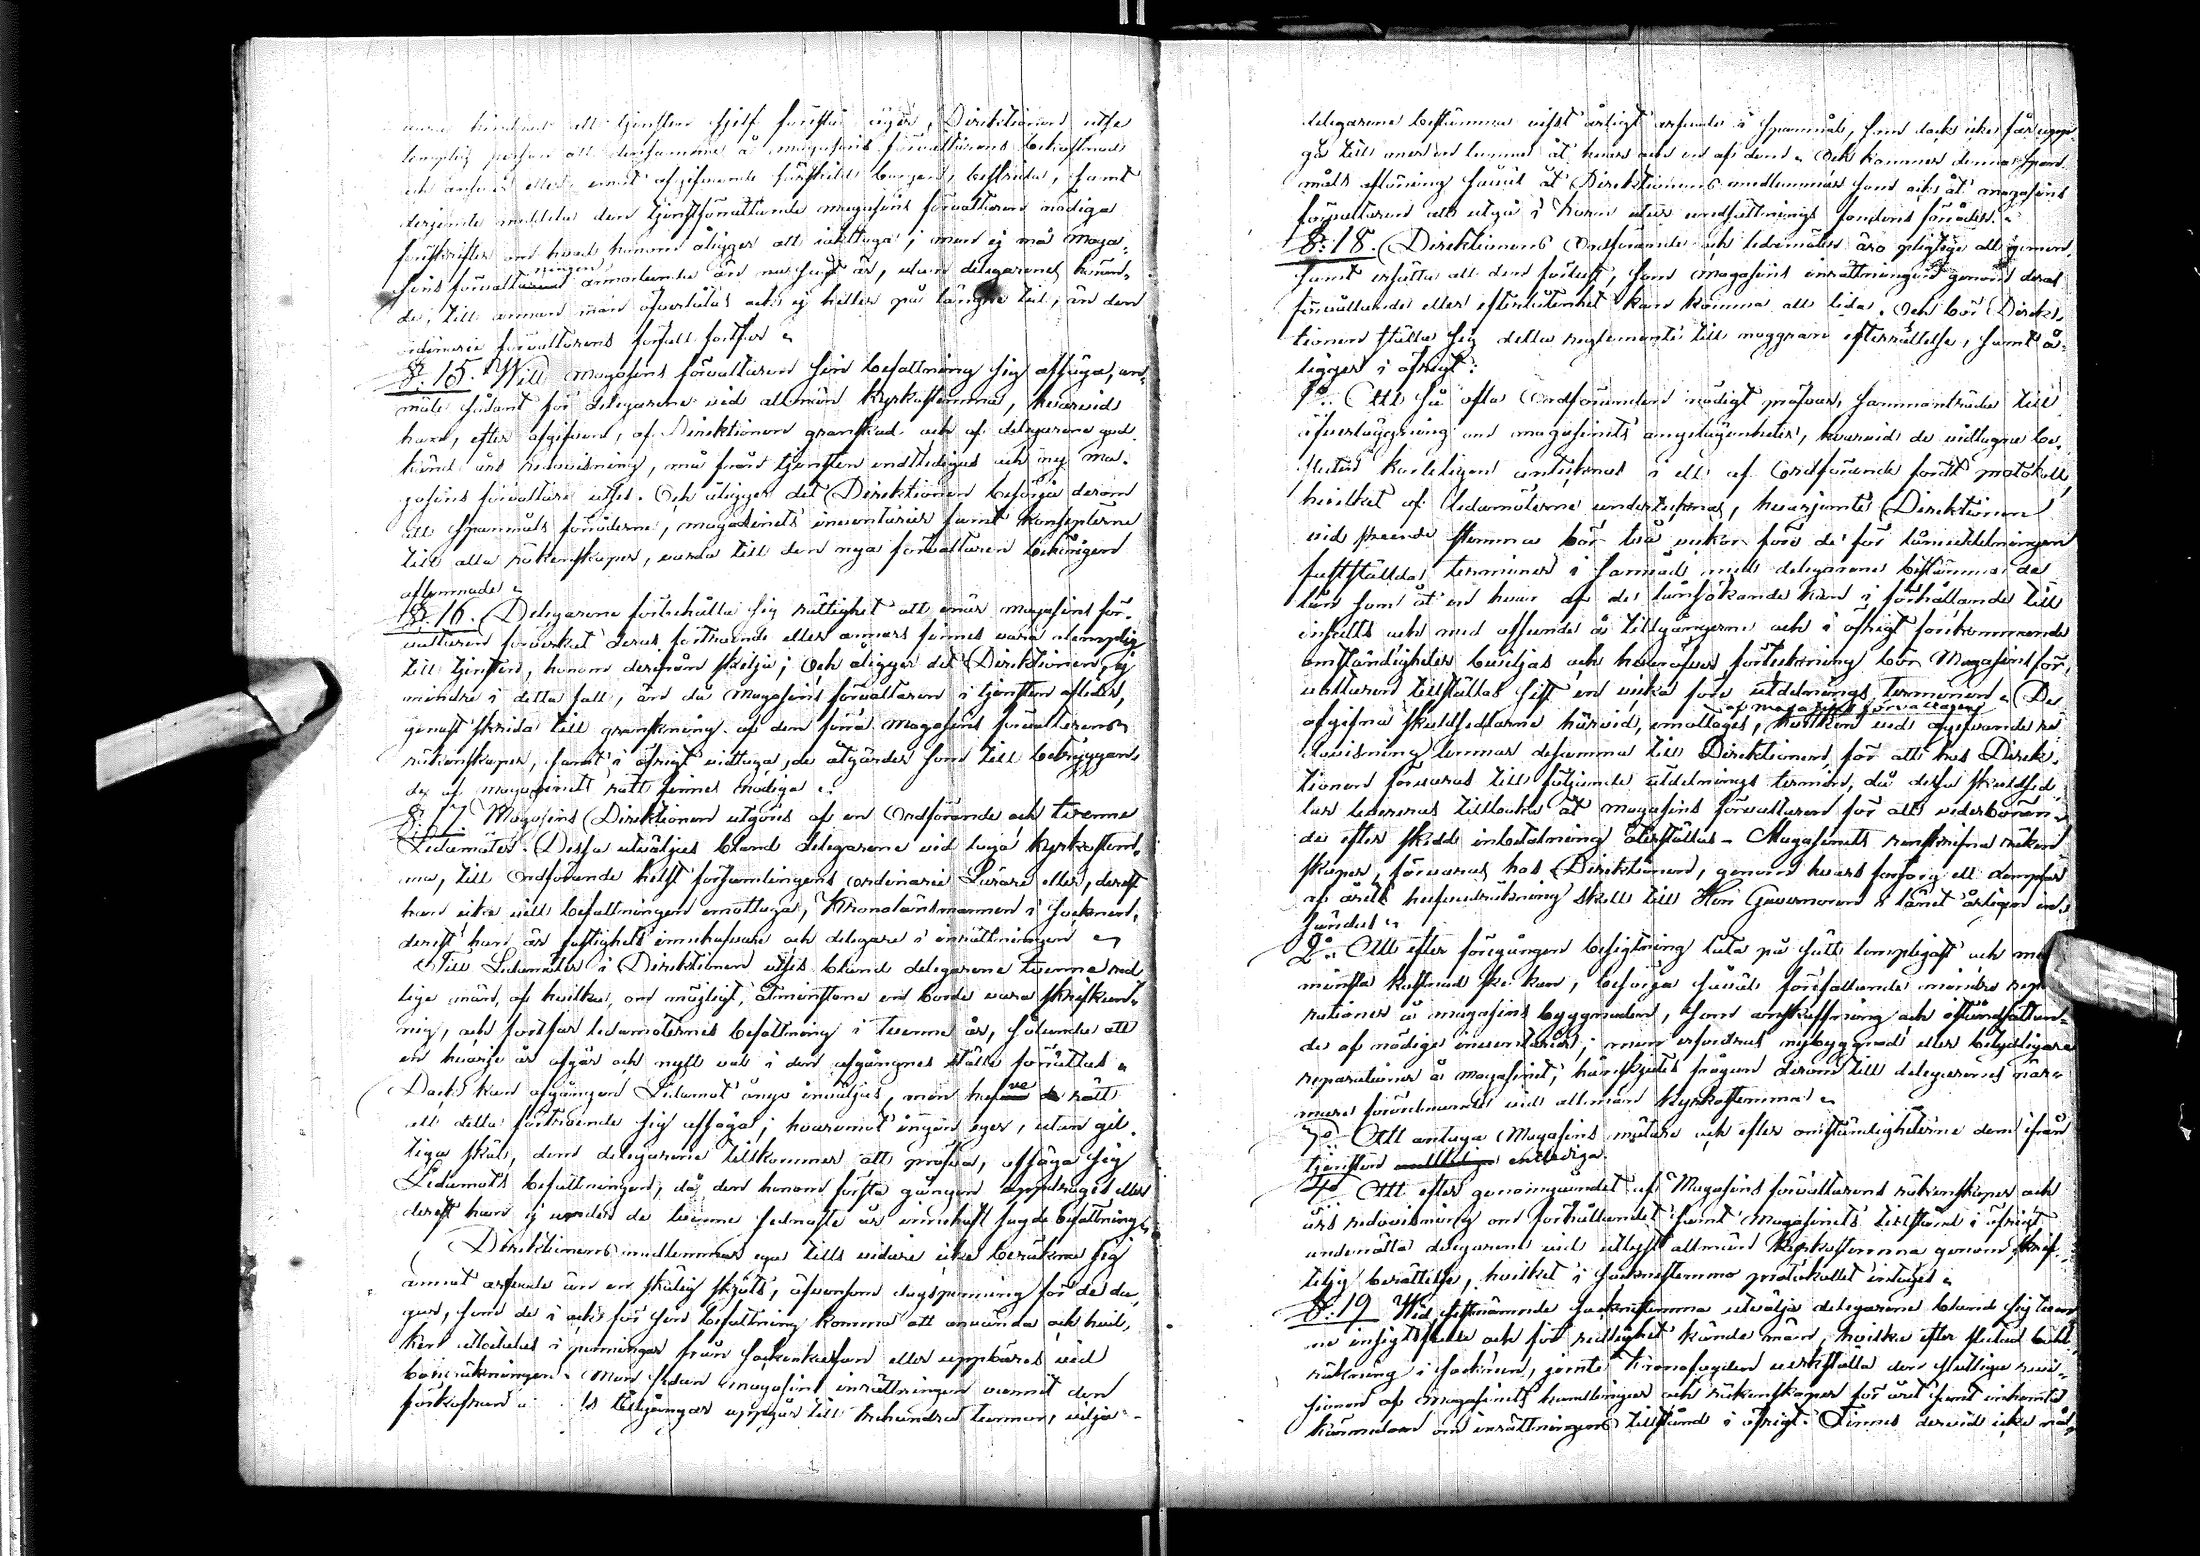 vara hindrad att tjensten sjelf förestå äger, Direktionen utse
lämplig person att densamma å magasins förvaltarens bekostnad
och ansvar eller emot afgifvande särskild borgen, bestrida, samt
derjemte meddela den tjenstförrättande magasins förvaltaren nödiga
föreskrifter om hvad honom åligger att iakttaga; men ej må Maga-
sins förvaltningen annorlunda än nu sagt är, utan delegarenes höran-
de, till annan man öfverlåtas och ej heller på längre tid, än den
ordinarie förvaltarens förfall fortfar
§. 15. Will Magasins förvaltaren sin befattning sig afsäga, an-
mäle sådant för delegarene vid allmän Kyrkostemma, hvarvid
han, efter afgifven, af Direktionen granskad och af delegarene god-
känd års redovisning, må från tjensten entledigas och ny Ma-
gasins förvaltare utses. Och åligger det Direktionen besörja derom
att Spannmåls förråderne, magasinets inventarier samt Koncepterne
till alla räkenskaper, varda till den nya förvaltaren behörigen
aflemnade
§. 16. Delegarene förbehålla sig rättighet att enär magasins för-
valtaren förverkat deras förtroende eller annars finnes vara olämplig
till tjensten, honom derifrån skilja; Och åligger det Direktionen ej
mindre i detta fall, än då Magasins förvaltaren i tjensten afleder,
genast skrida till granskning af den förra Magasins förvaltarens
räkenskaper, samt i öfrigt vidtaga de åtgärder som till betryggan-
de af magasinets rätt finnes nödiga
§. 17 Magasins Direktionen utgöres af en Ordförande och tvenne
Ledamöter. Dessa utväljes bland delegarene vid laga Kyrkostem-
ma, till Ordförande helst församlingens ordinarie Lärare eller, derest
han icke vill befattningen emottaga, Kronolänsmannen i socknen,
derest han är fastighets innehafvare och delegare i inrättningen
Till Ledamöter i Direktionen utses bland delegarene tvenne red-
lige män, af hvilka, om möjligt, åtminstone en borde vara skrifkun-
nig, och fortfar ledamöternes befattning i tvenne år, sålunda att
en hvarje år afgår och nytt val i den afgångnes ställe förrättas
Dock kan afgången Ledamot ånyo inväljas, men hafve rätt
att detta förtroende sig afsäga; hvaremot ingen eger, utan gil-
tiga skäl, dem delegarene tillkommer att pröfva, afsäga sig
Ledamots befattningen, då den honom första gången uppdrages eller
derest han ej under de tvenne sednaste år innehaft sagde befattning
Direktionens medlemmar ega tills vidare icke beräkna sig
annat arfvode än en skälig skjuts, äfvensom dagspenning för de da-
gar, som de i och för sin befattning komma att använda och hvil-
ken utbetalas i penningar från sockenkassan eller uppbäres vid
boschräkningen. Men sedan magasins inrättningen vunnit den
förkofran a ts tillgångar uppgår till trehundra tunnor, vilja
delegarene bestämma visst årligt arfvode i Spannmål, som dock icke får upp-
gå till mer en tunna åt hvar och en af dem. Och kommer denna Spann-
måls aflöning såväl åt Direktionens medlemmar som ock åt magasins
förvaltaren att utgå i korn utur undsättnings fondens förråder.
§. 18. Direktionens Ordförande och ledamöter äro pligtige att gemen-
samt ersätta all den förlust, som Magasins inrättningen genom deras
förvållande eller efterlåtenhet kan komma att lida. Och bör Direk-
tionen ställa sig detta reglemente till noggrann efterrättelse, samt å-
ligger i öfrigt:
1o. Att så ofta Ordföranden nödigt pröfvar, sammanträda till
öfverläggning om magasinets angelägenheter, hvarvid de vidtagna be-
sluten korteligen antecknas i ett af Ordförande fördt protokoll,
hvilket af Ledamöterne undertecknas, hvarjemte Direktionen
vid skeende stemma bör två veckor före de för låneutdelningen
fastställda terminer i samråd med delegarene bestämma de
lån som åt en hvar af de lånsökande kan i förhållande till
insatts och med afseende å tillgångerne och i öfrigt förekommande
omständigheter beviljas och hvaröfver förteckning bör Magasins för-
valtaren tillställas sist en vecka före utdelnings terminen. De
afgifna skuldsedlarne härvid, emottages, af magasins förvaltaren hvilken vid afgifvande re-
dovisning lemnar desamma till Direktionen, för att hos Direk-
tionen förvaras till följande utdelnings termin, då dessa skuldsed-
lar levereras tillbaka åt magasins förvaltaren för att vederböran-
de efter skedd inbetalning återställas - Magasinets renskrifna räken-
skaper, förvaras hos Direktionen, genom hvars försorg ett exemplar
af årets hufvudräkning skall till Herr Guvernören i länet årligen in-
sändas
2o. Att efter föregången besigtning låta på sätt lämpligast och med
minsta kostnad ske kan, besörja såväl förefallande mindre repa-
rationer å magasins byggnaden, som anskaffning och iståndsättan-
de af nödiga inventarier; men erfordras nybyggnad eller betydligare
reparationer å Magasinet, hänskjutes frågan derom till delegarenes när-
mare förordnande vid allmän Kyrkostemma
3o. Att antaga Magasins mätare och efter omständigheterne dem ifrån
tjensten entlediga.
4o. Att efter genomgåendet af Magasins förvaltarens räkenskaper och
års redovisning om förhållandet samt Magasinets tillstånd i öfrigt
underrätta delegarene vid utlyst allmän Kyrkostemma genom skrif-
telig berättelse, hvilket i sockenstemmo protokollet intages
§. 19 Wid sistnämnde sockenstemma utvälja delegarene bland sig tven-
ne insigtsfulle och för redlighet kände män, hvilka efter slutad bok-
räkning i socknen, jemte Kronofogden verkställa den slutliga revi-
sionen af Magasinets handlingar och räkenskaper för året samt inhemta
kännedom om inrättningens tillstånd i öfrigt. Finnes dervid icke nå-